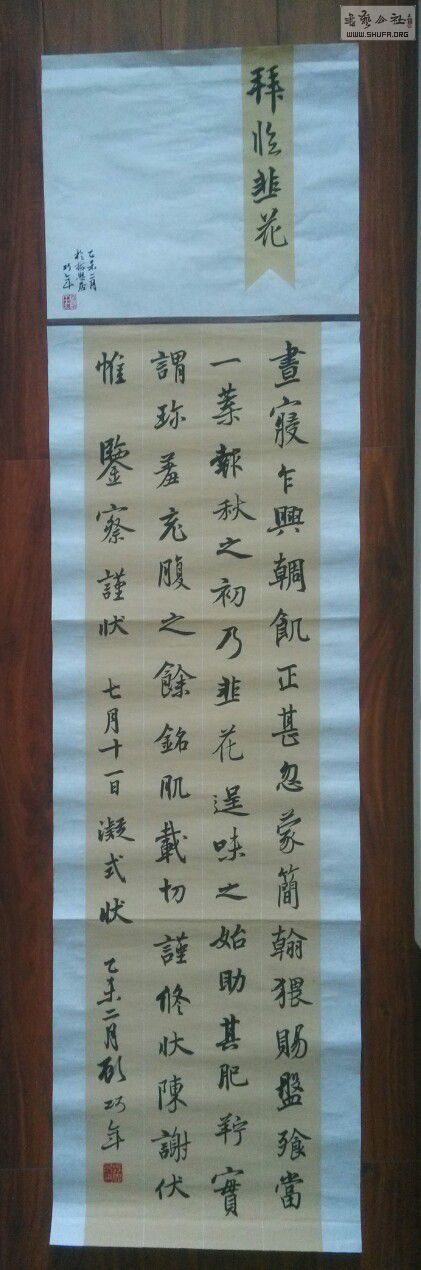 書藝公社
WWW.SHUFA.ORG
拜临韭花
乙未二月
於
巧年
晝寢乍興輖飢正甚忽蒙簡翰猥賜盤飱當
一葉報秋之初乃韭花逞味之始助其肥羜實
謂珍羞充腹之餘銘肌載切謹修狀陳謝伏
惟鑒察謹狀 七月十一日凝式狀 乙未二月巧年